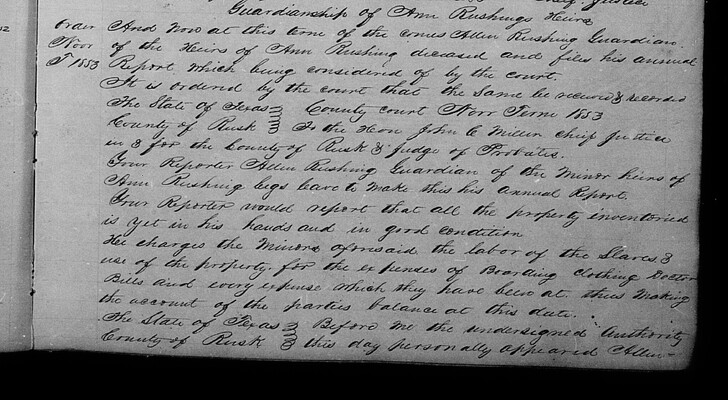 Chief Justice
Guardianship of Ann Rushings Heirs
Order And Now at this time of the comes Allen Rushing Guardian
Novr of the Heirs of Ann Rushing deceased and files his annual
T 1853 Report which being considered of by the court.
It is ordered by the court that the Same be received & recorded
The State of Texas County court Novr Term 1853
County of Rusk To the Hon John C Miller chief Justice
in & for the County of Rusk & judge of Probate.
Your Reporter Allen Rushing Guardian of the minor heirs of
Ann Rushing begs leave to make this his annual Report.
Your Reporter would report that all the property inventoried
is yet in his hands and in good condition
He charges the Minors aforesaid the labor of the Slaves &
use of the property. for the expenses of Boarding Clothing Doctor
Bills and every expense which they have been at. thus making
the account of the parties balance at this date.
The State of Texas Before me the undersigned Authority
County of Rusk this day personally appeared Allen